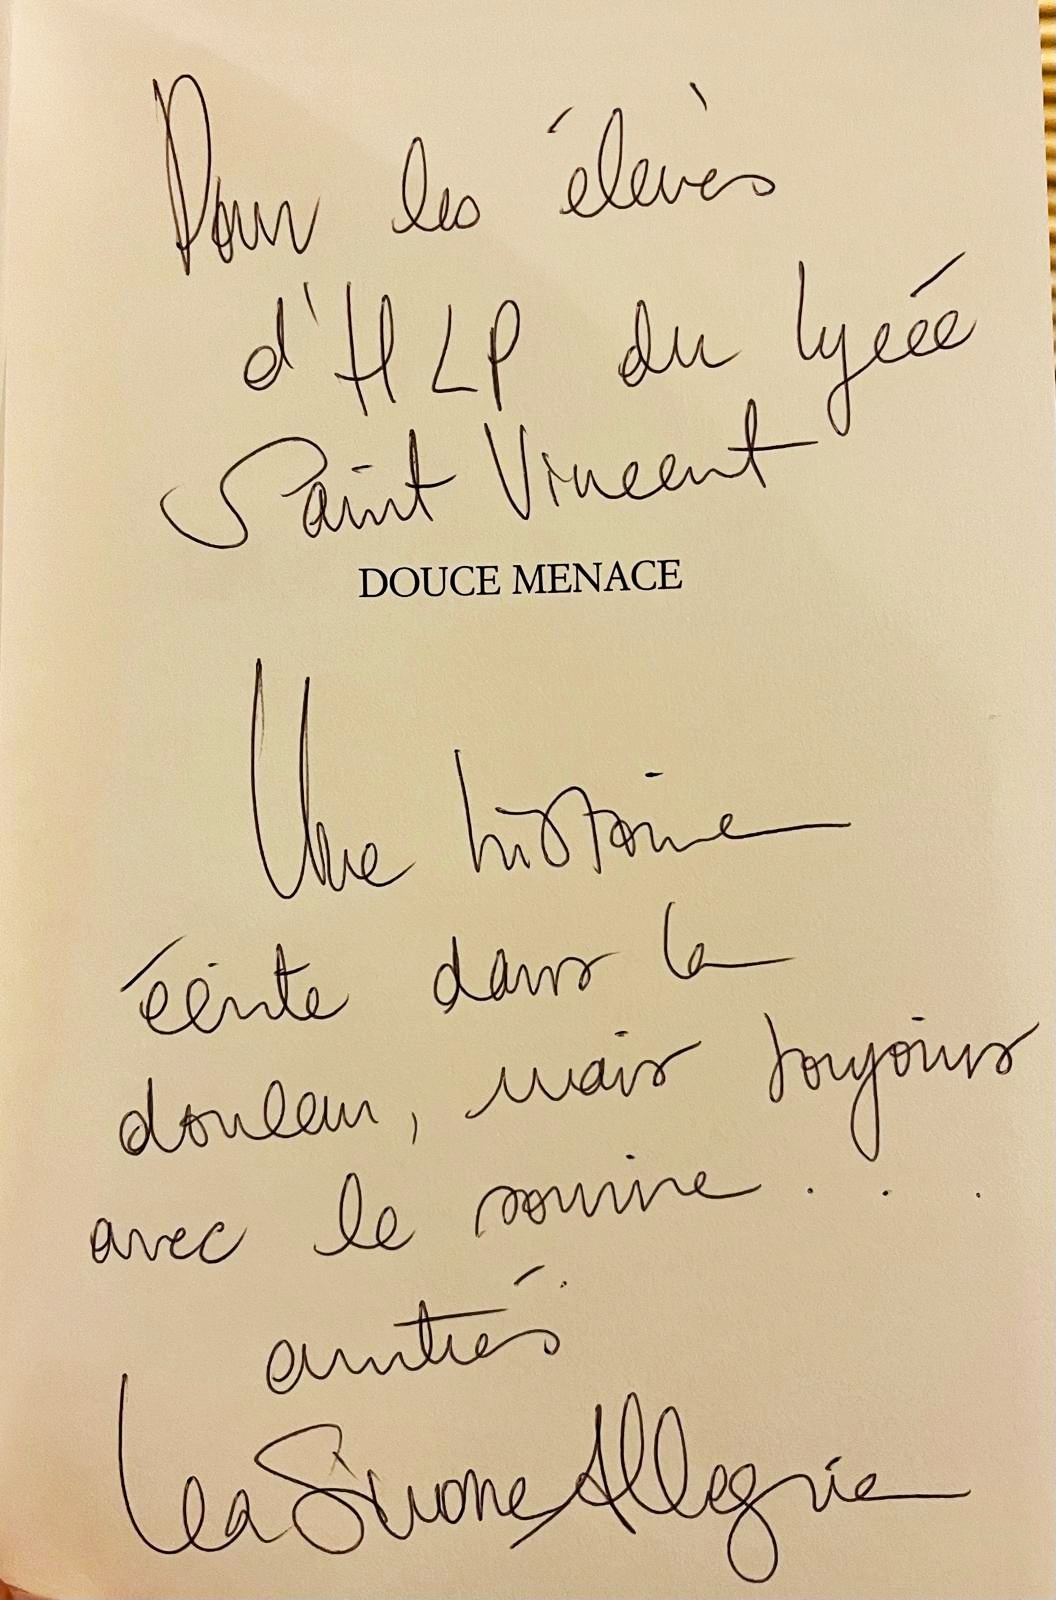 Pour les élèves
d'HLP du lycée
Saint Vincent
DOUCE MENACE
Une histoire
écrite dans la
douleur, mais toujours
avec le sourire...
amitiés
Léa Simone Allegria